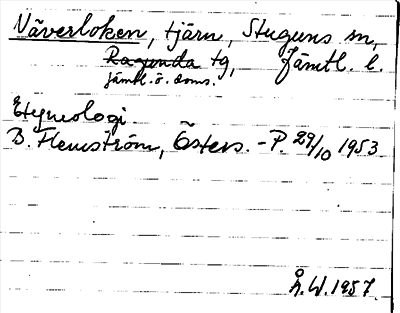 Näverloken, tjärn, Stuguns sn,
Ragunda tg, Jämtl. l.
jämtl. ö. doms.
Etymologi.
B. Flemström, Östers. -P. 29/10 1953
Å.W. 1957.